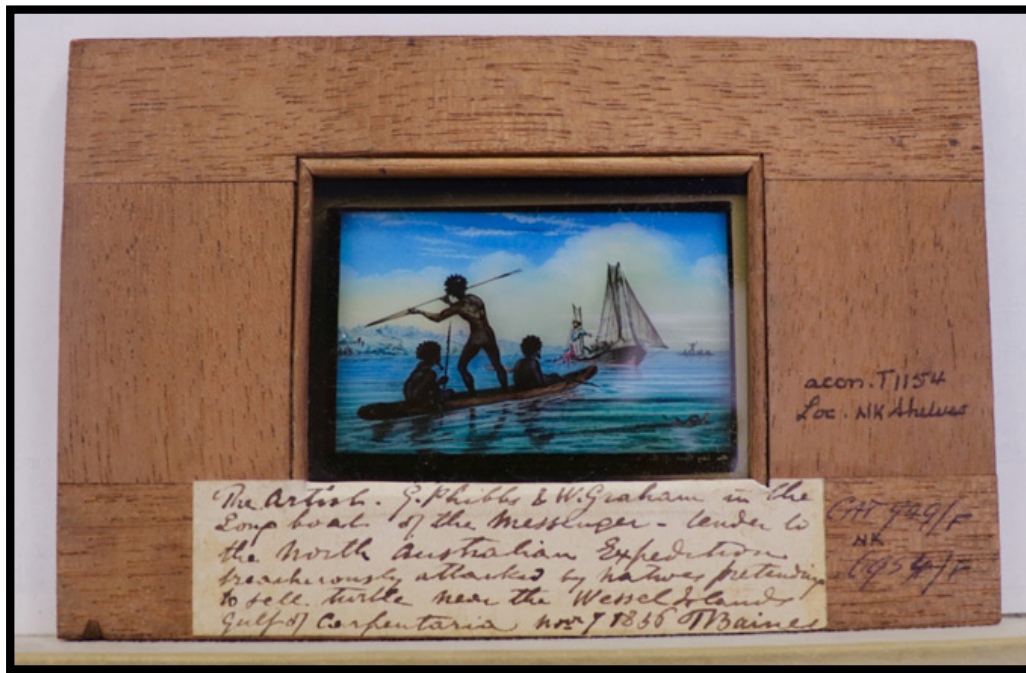 accn. T1154
Loc. NK Shelves
The Artist. G. Phibbs & W. Graham in the
Long boat of the Messenger - tender to
the North Australian Expedition
treacherously attacked by natives pretending
to sell turtle near the Wessel Islands
Gulf of Carpentaria Novr 7 1856 TBaines
CAT 929/F
NK
6954/F